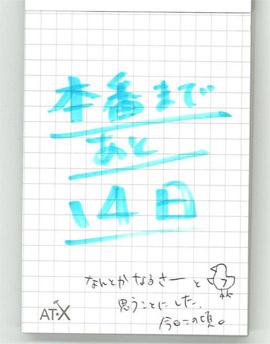 本番まで
あと
14日
なんとかなるさーと
思うことにした。
今日この頃。
AT-X